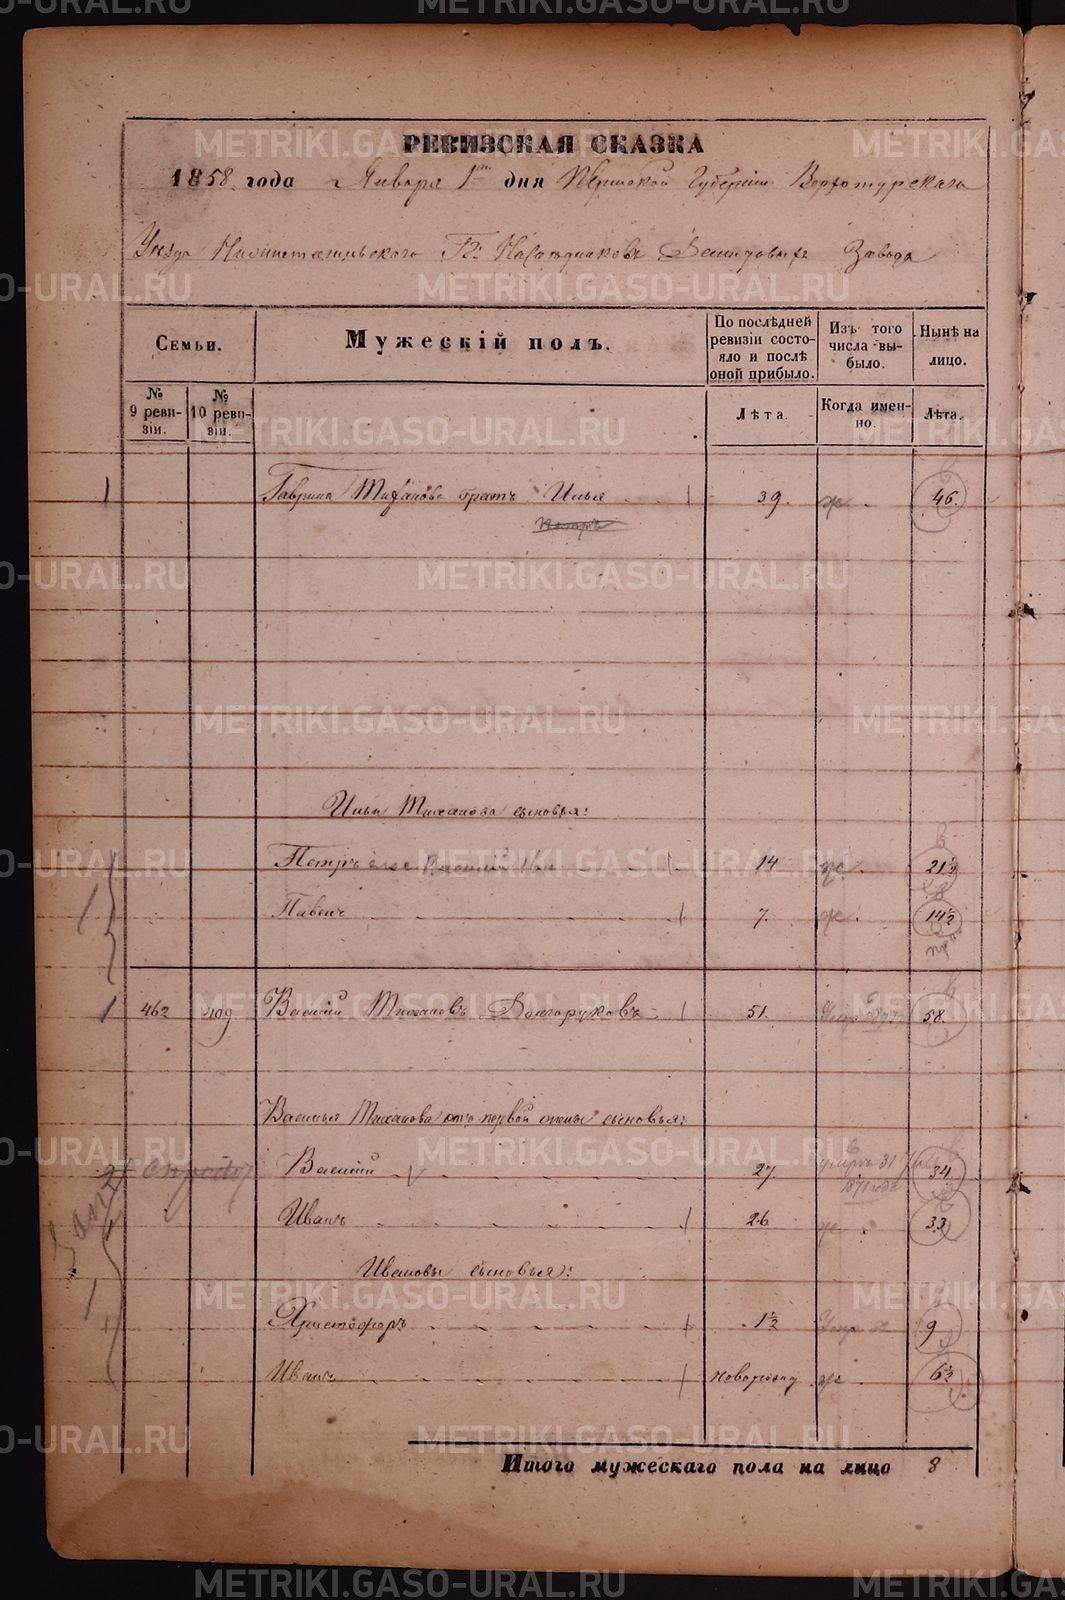 METRIKI.GASO-URAL.RU
РЕВИЗСКАЯ СКАЗКА
1858 года Января 1 дня Пермской Губерніи Верхотурскаго
Уезда Нижнетагильскаго Гг: Наследниковъ Демидовыхъ Завода
Семьи.
Мужескій полъ.
По послѣдней ревизіи состояло и послѣ оной прибыло.
Изъ того числа выбыло.
Нынѣ на лицо.
№ 9 ревизіи.
№ 10 ревизіи.
Лѣта.
Когда именно.
Лѣта.
1 Гаврила Тиханова братъ Илья 39. ж. 46.
Ильи Тиханова сыновья:
Петръ 14 ж. 21½
Павелъ 7. ж. 14½
1 462 409 Василій Тихановъ Долгоруковъ 51. 58.
Василья Тиханова отъ первой жены сыновья:
Василій 27 34
Иванъ 26 ж. 33
Ивановы сыновья:
Христофоръ 1½ 9
Иванъ новорожд ж. 6½
Итого мужескаго пола на лицо 8